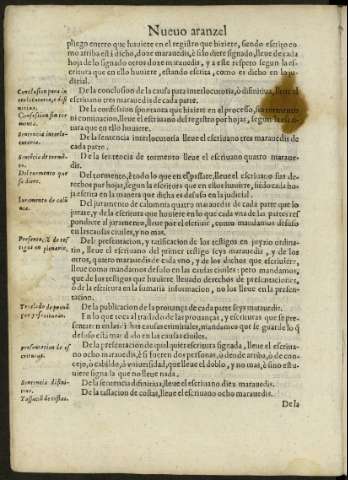 Nueuo aranzel
pliego entero que huuiere en el registro que hiziere, siendo escrito co
mo arriba está dicho, doze marauedis, è si lo diere signado, lleue de cada
hoja de lo signado otros doze marauedis, y a esse respeto segun la es
critura que en ello huuiere, estando escrita, como es dicho en lo ju-
dicial.
Conclusion para in
terlocutoria, o di
finitiua.
De la conclusion de la causa para interlocutoria, ò difinitiua, lleue el
escriuano tres marauedis de cada parte.
Confession sin tor
mento.
De la confession sin tormento que hiziere en el processo, sin tormento
ni cominacion, lleue el escriuano del registro por hojas, segun la escri
tura que en ello huuiere.
Sentencia interlo-
cutoria.
De la sentencia interlocutoria lleue el escriuano tres marauedis de
cada parte.
Sentēcia de tormē
to.
De la sentencia de tormento lleue el escriuano quatro maraue
dis.
Del tormento que
se diere.
Del tormento, è todo lo que en el passare, lleue el escriuano sus de-
rechos por hojas, segun la escritura que en ellos huuiere, siēdo cada ho
ja escrita en la manera que dicha es de suso en lo judicial.
Iuramento de calū
nia.
Del juramento de calomnia quatro marauedis de cada parte que lo
jurare, y de la escritura que huuiere en lo que cada vna de las partes res
pondiere al juramento, lleue por el escriuir, como mandamos de suso
en las causas ciuiles, y no mas.
Presentaciō de tes
tigos en plenario.
De la presentacion, y ratificacion de los testigos en juyzio ordina-
rio, lleue el escriuano del primer testigo seys marauedis, y de los
otros, quatro marauedis de cada vno, y de los dichos que escriuiere,
lleue como mandamos de suso en las causas ciuiles: pero mandamos,
que de los testigos que huuiere lleuado derechos de presentaciones,
ò de la escritura en la sumaria informacion, no los lleue en la presen-
tacion.
De la publicacion de la prouança de cada parte seys marauedis.
Traslado de prouā
ças y escrituras.
En lo que toca al traslado de las prouanças, y escrituras que se pre-
sentaren en las dichas causas criminales, mandamos que se guarde lo q̄
de suso está mandado en las causas ciuiles.
presentacion de es
crituras.
De la presentacion de qualquier escritura signada, lleue el escriua-
no ocho marauedis, è si fueren dos personas, ò dende arriba, ò de con-
cejo, ò cabildo, ò vniuersidad, que lleue el doblo, y no mas, è sino estu-
uiere signada que no lleue nada.
Sentencia difini-
tiua.
De la sentencia difinitiua, lleue el escriuano diez marauedis.
Tassaciō de costas.
De la tassacion de costas, lleue el escriuano ocho marauedis.
De la